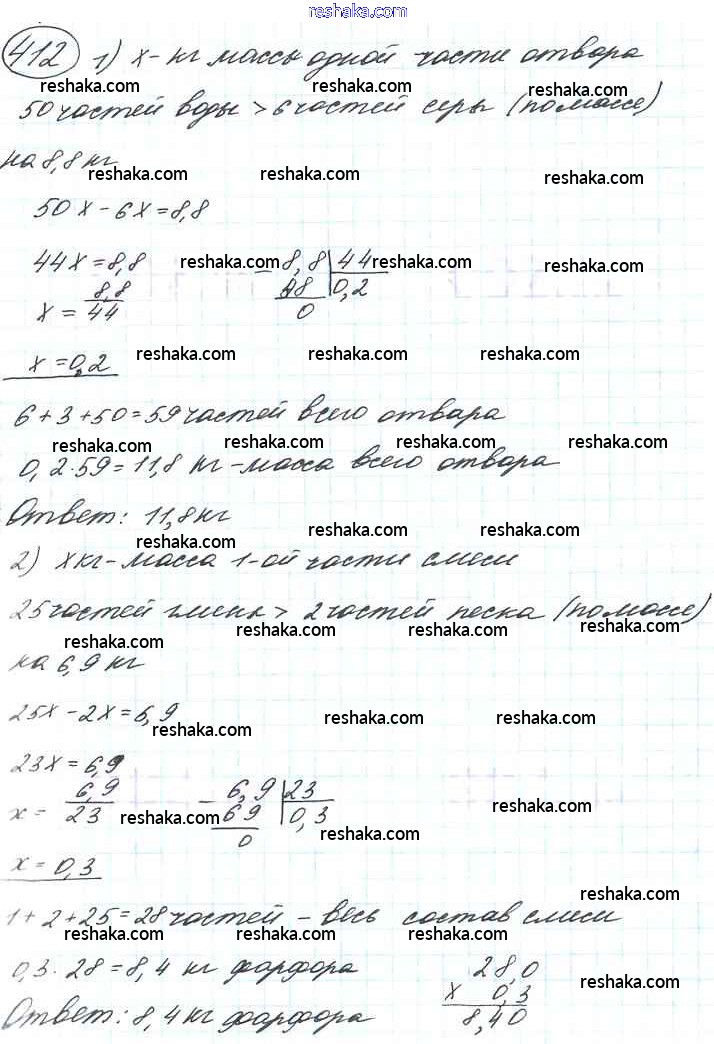 reshaka.com
412 1) х - кг массы одной части отвара
reshaka.com reshaka.com reshaka.com reshaka.com
50 частей воды > 6 частей серы (по массе)
на 8,8 кг
reshaka.com reshaka.com reshaka.com
50х - 6х = 8,8
44х = 8,8 reshaka.com - 8,8 | 44 reshaka.com reshaka.com
х = 8,8/44 88 | 0,2
0
х = 0,2 reshaka.com reshaka.com reshaka.com
6 + 3 + 50 = 59 частей всего отвара
reshaka.com reshaka.com reshaka.com reshaka.com
0,2 · 59 = 11,8 кг - масса всего отвара
Ответ: 11,8 кг
reshaka.com reshaka.com reshaka.com
2) х кг - масса 1-ой части смеси
25 частей глины > 2 частей песка (по массе)
reshaka.com reshaka.com reshaka.com reshaka.com
на 6,9 кг
25х - 2х = 6,9 reshaka.com reshaka.com
reshaka.com
23х = 6,9
х = 6,9/23 reshaka.com - 6,9 | 23 reshaka.com reshaka.com
69 | 0,3
0
х = 0,3
reshaka.com
1 + 2 + 25 = 28 частей - весь состав смеси
reshaka.com reshaka.com reshaka.com reshaka.com
0,3 · 28 = 8,4 кг фарфора 28,0
х 0,3 reshaka.com
Ответ: 8,4 кг фарфора 8,40